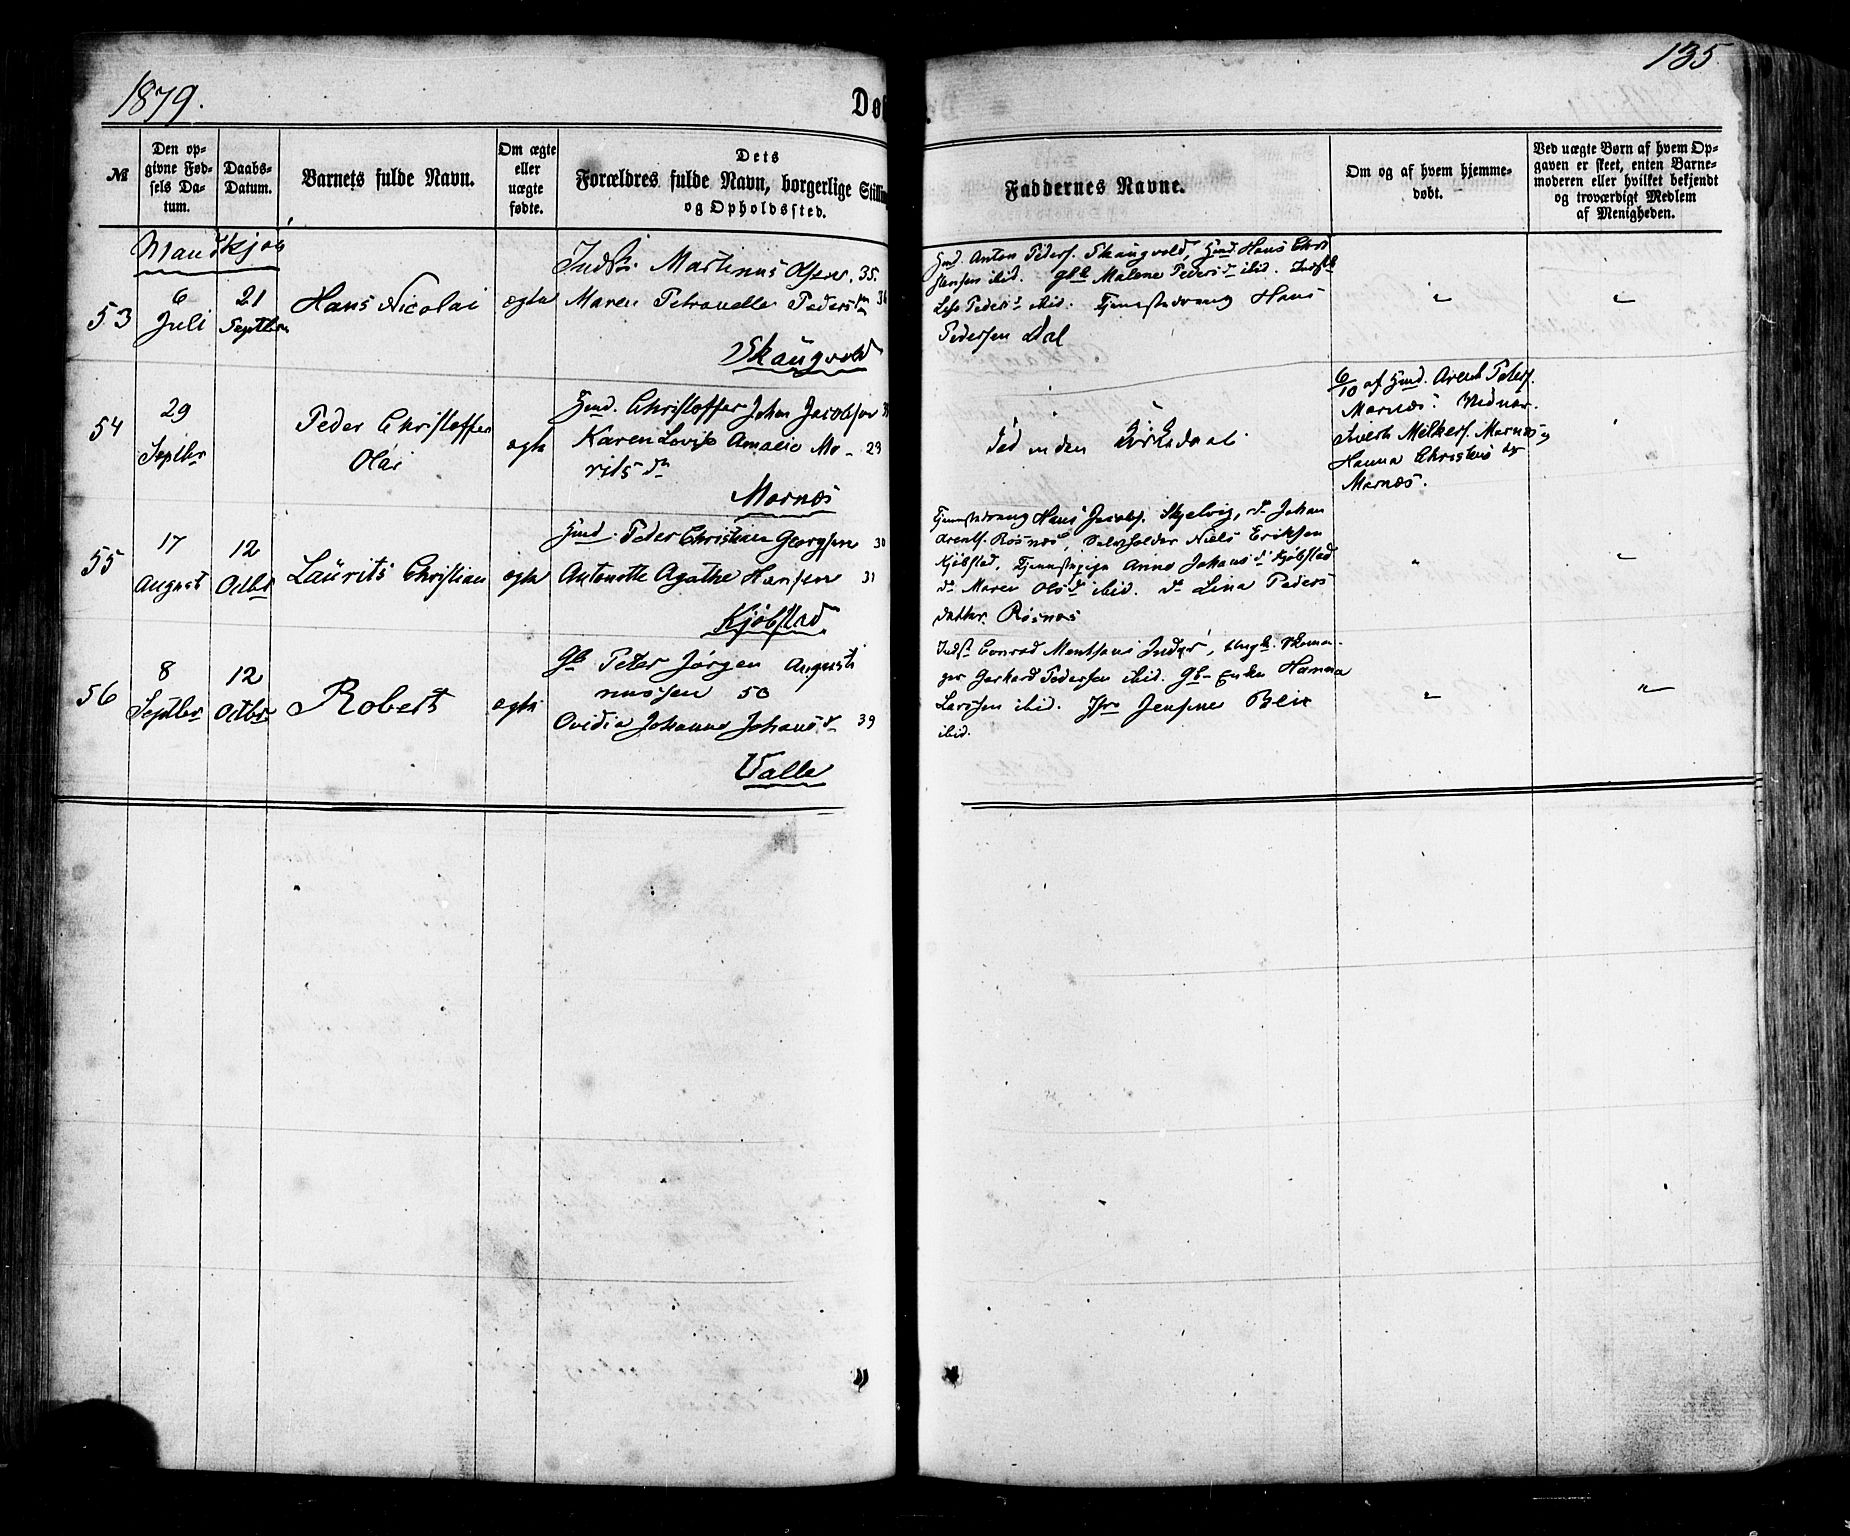 1879.
135
Dø
№
Den op-
givne Fød-
sels Da-
tum.
Daabs-
Datum.
Barnets fulde Navn.
Om ægte
eller
uægte
fødte.
Dets
Forældres fulde Navn, borgerlige Stillin
og Opholdssted.
Faddernes Navne.
Om og af hvem hjemme-
døbt.
Ved uægte Børn af hvem Op-
gaven er skeet, enten Barne-
moderen eller hvilket bekjendt
og troværdigt Medlem
af Menigheden.
Mandkjøn
53
6
Juli
21
Septbr
Hans Nicolai
ægte
Inds. Martinus Olsen. 35.
Maren Petronelle Peders
Skaugvold
Gmd. Anton Peders. Skaugvold, Gmd. Hans Chri
stensen ibid. Gbk Malene Pedersd ibid. Indstk
Pedersd ibid. Tjenestedreng Hans
Pedersen Dal
"
"
54
29
Septbr
Peder Christoffer
Olai
ægte
Gmd. Christoffer Johan Jacobsen
Karen Lovise Amalie Mo- 29
rits dr
Mornæs
Død inden Kirkedaab
6/10 af Gmd. Arent Peders.
Mornæs. Vidner.
Sivert Melkers. Mornæs og
Hanna Christens dr
Mornæs.
55
17
August
12
Octbr
Laurits Christian
ægte
Gmd. Peder Christian Georgsen 30
Antonette Agathe Hansen 31
Kjøbstad
Tjenestedreng Hans Jacobs. Skjelvig, do Johan
Arents. Røsnæs, Selvholder Niels Eriksen
Kjøbstad, Tjenestepige Anne Johansd Kjøbstad
do Maren Olsd ibid. do Lina Peders
datter Røsnæs
"
"
56
8
Septbr
12
Octbr
Robert
ægte
Gb Peter Jørgen August
nussen 50
Ovidia Johanna Johansd 39
Valle
Indst Conrad Mentsens Indyr, Ungk. Skoma-
ger Gerhard Pedersen ibid. Gb- Enke Hanna
Larssen ibid. Jfr Jensine Blix
ibid.
"
"